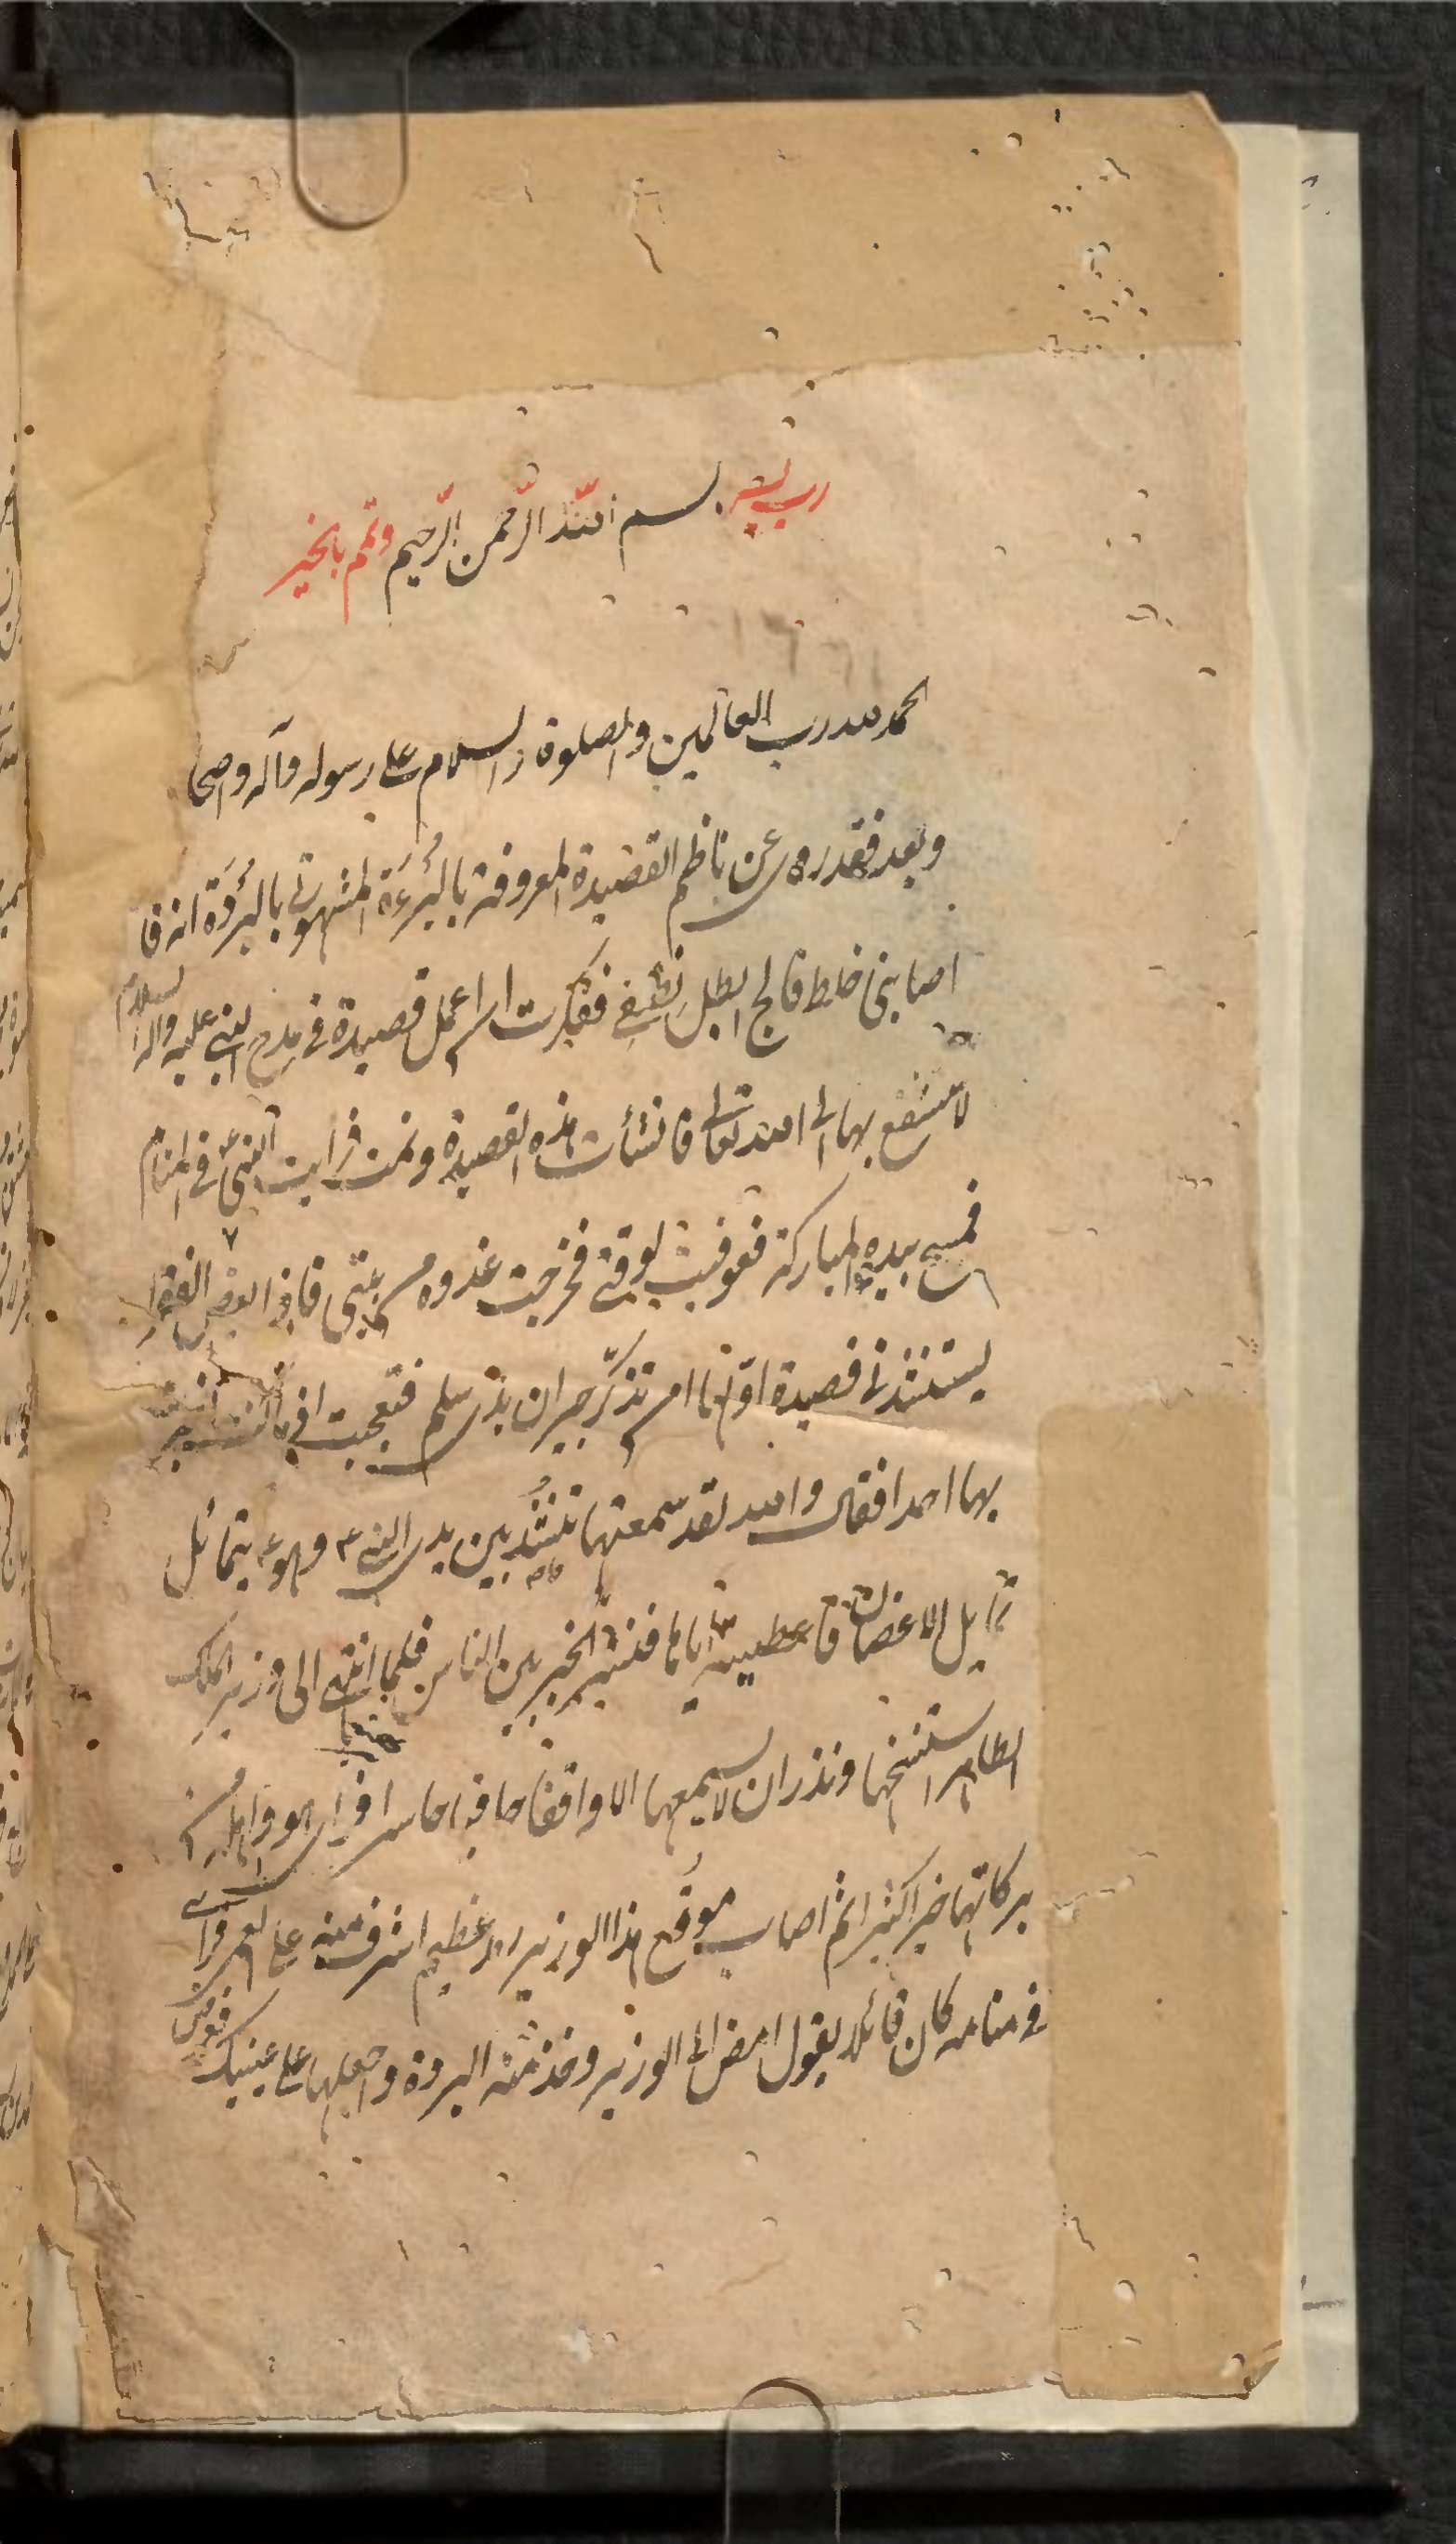 رب يسر بسم الله الرّحمن الرّحيم وتمّم بالخير
الحمد لله رب العالمين والصلوة والسلام على رسوله وآله واصحا
وبعد فقد روى عن ناظم القصيدة المعروفة بالبُرءَة المشهورة بالبُردَة انه قا
اصابنى خلط فالج ابطل نصفى ففكرت ان اعمل قصيدة فى مدح النبى عليه واله السلام
لاستشفع بها الى الله تعالى فانشأت هذه القصيدة ونمت فرايت النبى فى المنام
فمسح بيده المباركة فعوفيت لوقتى فخرجت غدوة من بيتى فاذا بعض الفقراء
يستنشدنى قصيدة اوّلها امن تذكّر جيران بذى سلم فتعجبت
بها احدا فقال والله لقد سمعتها تنشد بين يدى النبى ع وهو ع يتمائل
تمايل الاغصان فاعطيته اياها فنشر الخبر بين الناس فلما انتهى الى وزير الملك
الطاهر استنسخها ونذر ان لا يسمعها الا واقفا حافيا حاسرا فراى هو واهله من
بركاتها خيرا كثيرا ثم اصاب موقّع هذا الوزير رمد عظيم اشرف منه على العمى فراى
فى منامه كان قائلا يقول امض الى الوزير وخذ منه البردة واجعلها على عينيك